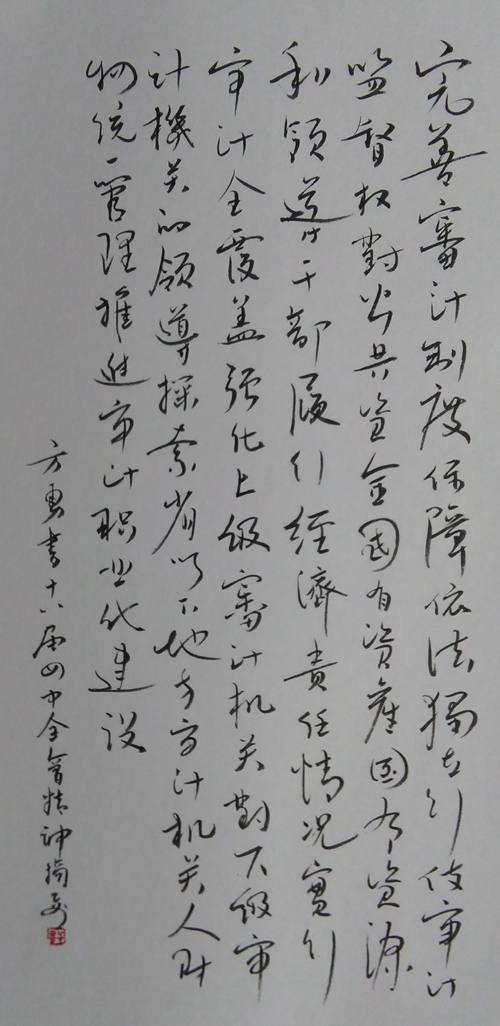 完善審计制度保障依法獨立行使审计
监督权對公共资金國有資產国有资源
和領導干部履行经濟責任情况實行
审计全覆盖强化上级審计机关對下级审
计機关的領導探索省以下地方审计机关人财
物统一管理推进审计职业化建设
方勇書十八届四中全會精神摘要